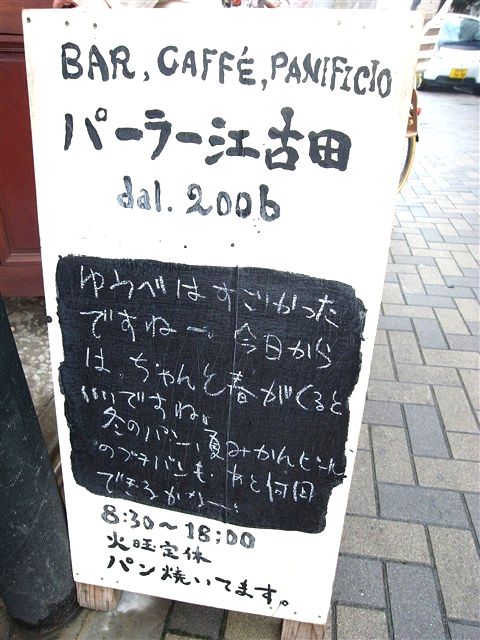 BAR, CAFFÉ, PANIFICIO
パーラー江古田
dal. 2006
ゆうべはすごかった
ですねー。今日から
は、ちゃんと春がくると
いいですね。
冬のパン、夏みかんピール
のプチパンも あと何回
できるかなー。
8:30〜18:00
火曜定休
パン焼いてます。